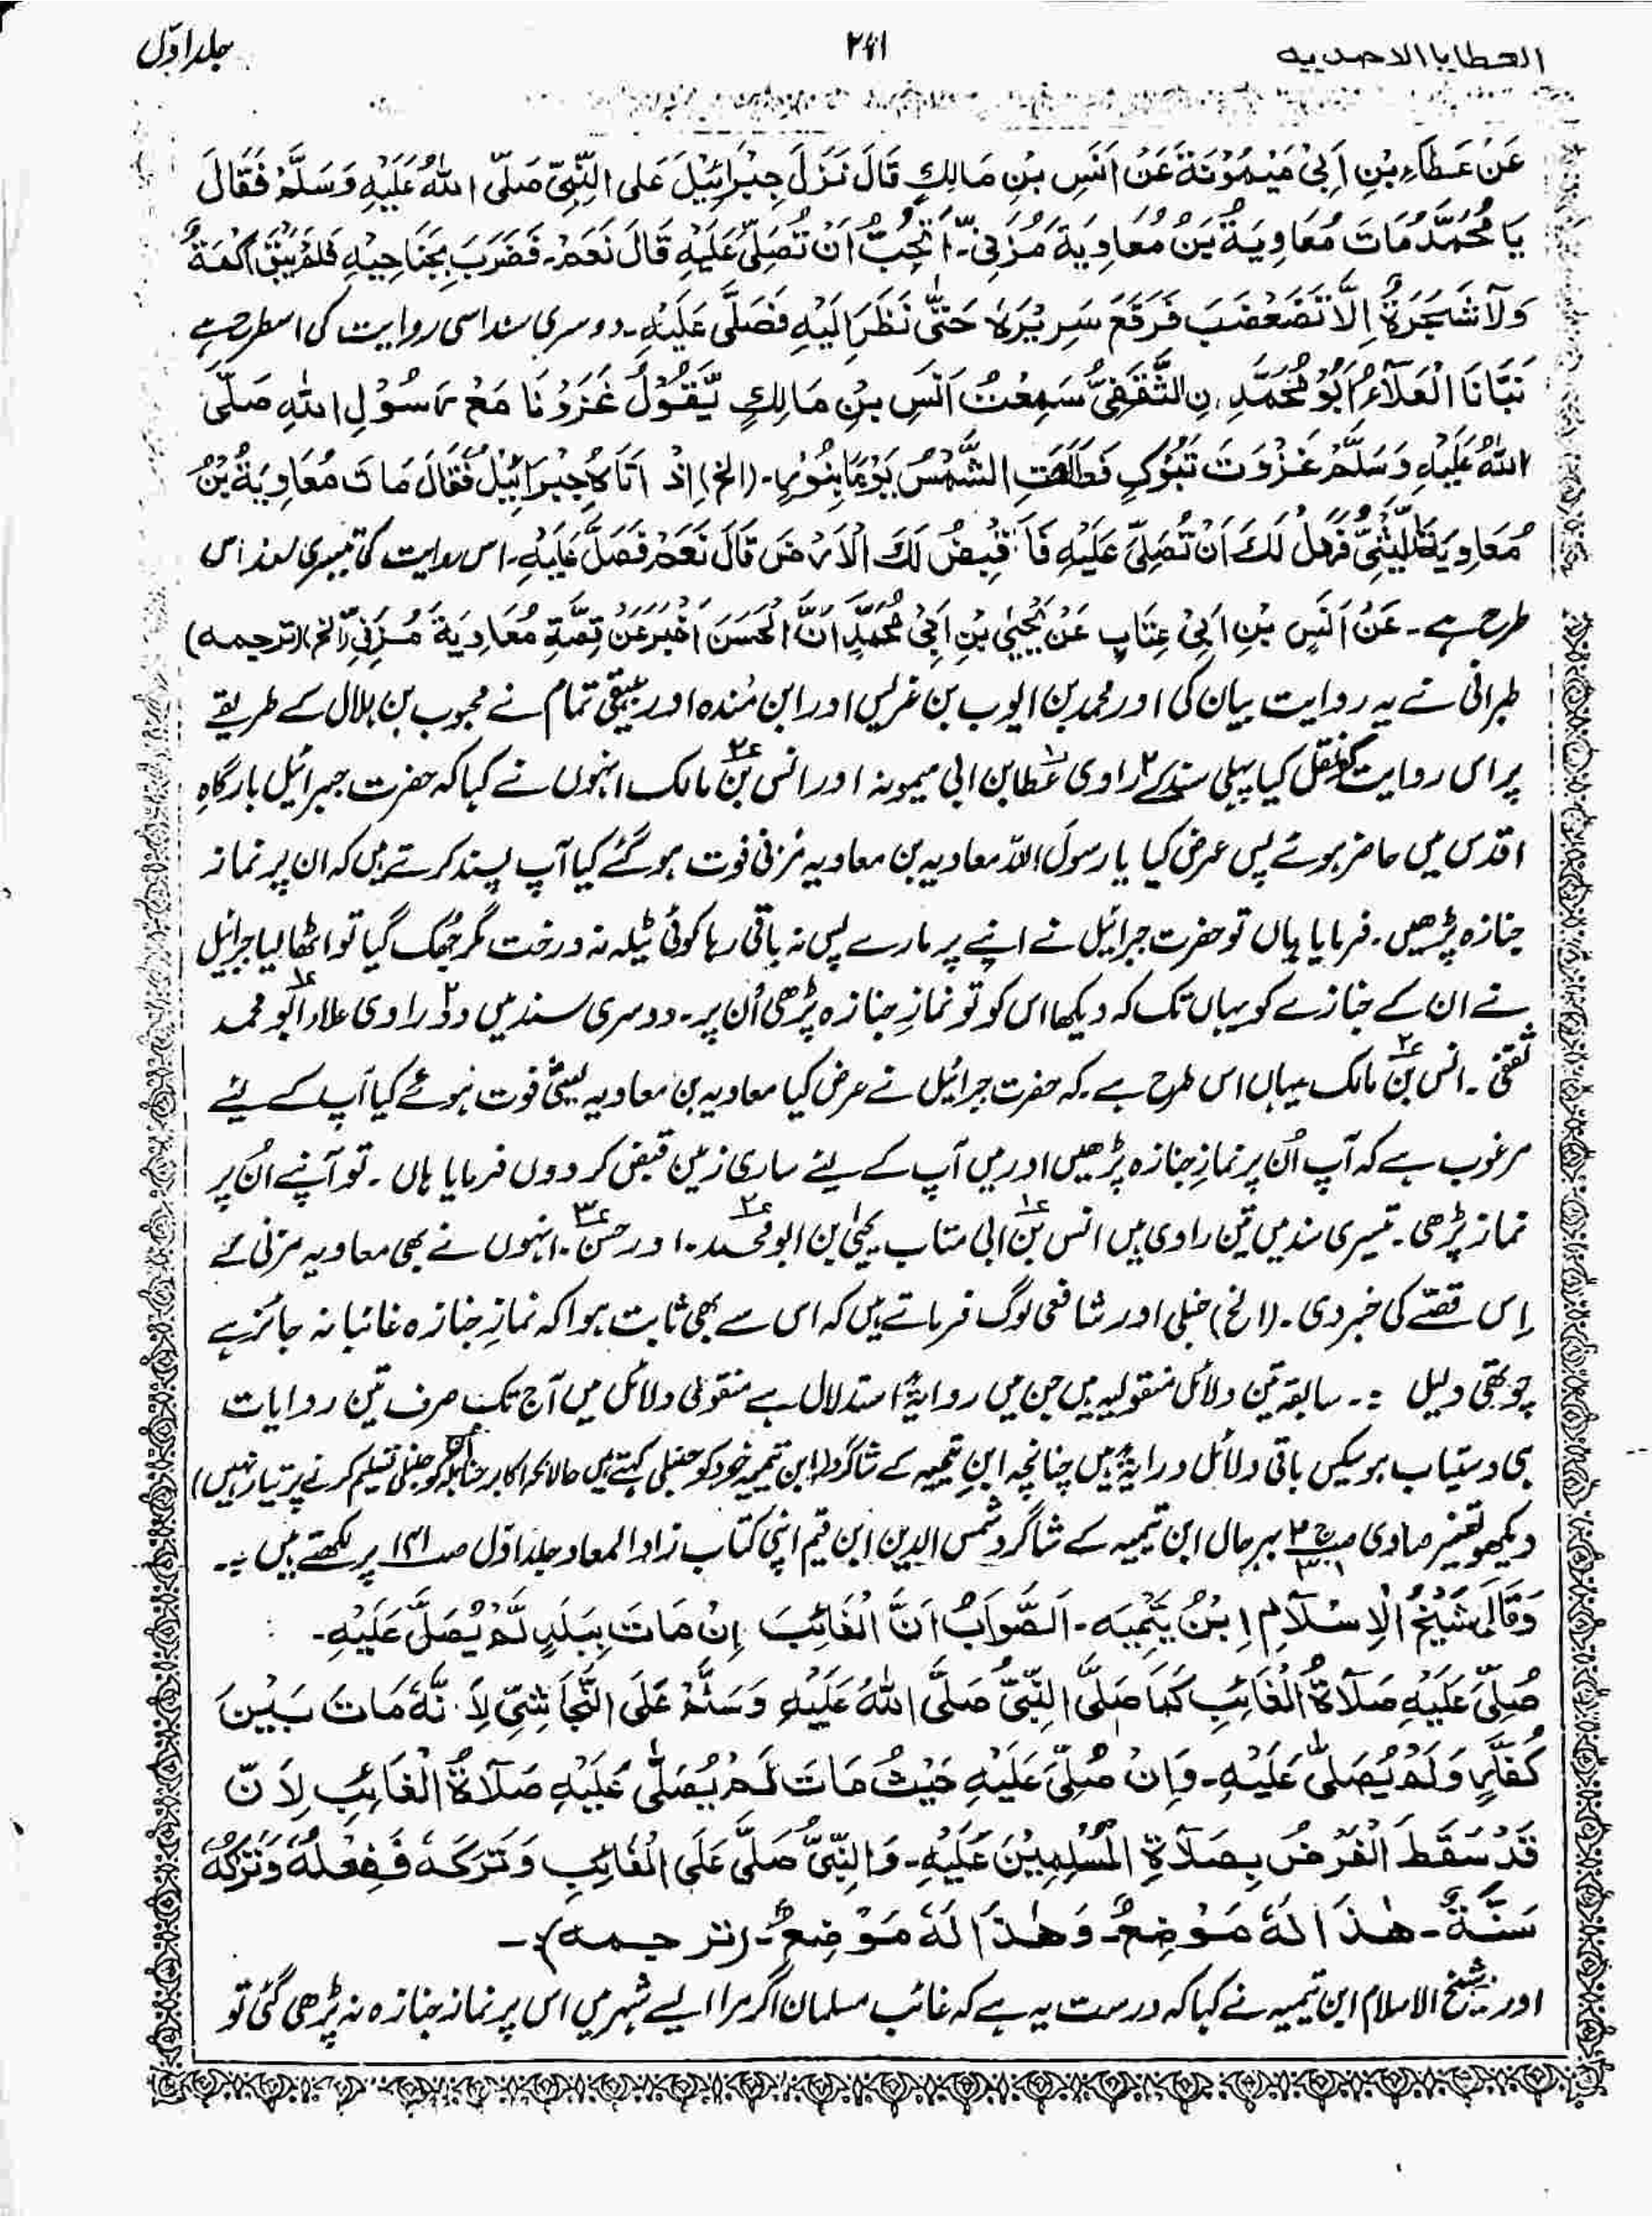 العطایا الاحمدیہ
۲۶۱
جلد اوّل
عَنْ عَطَاءِ بْنِ اَبِیْ مَیْمُوْنَۃَ عَنْ اَنَسِ بْنِ مَالِكٍ قَالَ نَزَلَ جِبْرَائِیْلَ عَلی النَّبِیِّ صَلَّی اللہُ عَلَیْہِ وَسَلَّمْ فَقَالَ
یَا مُحَمَّدُ مَاتَ مُعَاوِیَۃُ بْنُ مُعَاوِیَۃَ مُزَنِیْ۔ اَتُحِبُّ اَنْ تُصَلِّیَ عَلَیْہِ قَالَ نَعَمْ۔ فَضَرَبَ بِجَنَاحَیْہِ فَلَمْ یَبْقَ اَکْمَۃٌ
وَلَا شَجَرَۃٌ اِلَّا تَضَعْضَبَ فَرَفَعَ سَرِیْرَہٗ حَتّٰی نَظَرَ اِلَیْہِ فَصَلَّی عَلَیْہِ۔ دوسری سند اسی روایت کی اسطرح ہے
نَبَّانَا الْعَلَآءُ اَبُوْ مُحَمَّدِ نِ الثَّقَفِیُّ سَمِعْتُ اَنَسِ بْنِ مَالِكٍ یَّقُوْلُ غَزَوْنَا مَعْ رَسُوْلِ اللہِ صَلَّی
اللہُ عَلَیْہِ وَسَلَّمْ غَزْوَتَ تَبُوْكٍ فَطَلَعَتِ الشَّمْسُ یَوْمًا بِنُوْرٍ۔ (الخ) اِذْ اَتَاہُ جِبْرَائِیْلُ فَقَالَ مَاتَ مُعَاوِیَۃُ بْنُ
مُعَاوِیَۃَ اللَّیْثِیُّ فَہَلْ لَكَ اَنْ تُصَلِّیَ عَلَیْہِ فَاَقْبِضُ لَكَ الْاَرْضَ قَالَ نَعَمْ فَصَلَّ عَلَیْہِ۔ اس روایت کی تیسری سند اس
طرح ہے۔ عَنْ اَنَسِ بْنِ اَبِیْ عِتَابٍ عَنْ یَحْیٰی بْنِ اَبِیْ مُحَمَّدٍ اَنَّ الْحَسَنَ اَخْبَرَ عَنْ قِصَّۃِ مُعَاوِیَۃَ مُزَنِیٍّ الخ (ترجمہ)
طبرانی نے یہ روایت بیان کی اور محمد بن ایوب بن غریس اور ابن مندہ اور بیہقی تمام نے محبوب بن ہلال کے طریقے
پر اس روایت کو نقل کیا پہلی سند کے ۲ راوی ع۱ عطا بن ابی میمونہ اور ع۲ انس بن مالک انہوں نے کہا کہ حضرت جبرائیل بارگاہِ
اقدس میں حاضر ہوئے پس عرض کیا یا رسول اللہ معاویہ بن معاویہ مزنی فوت ہو گئے کیا آپ پسند کرتے ہیں کہ ان پر نماز
جنازہ پڑھیں۔ فرمایا ہاں تو حضرت جبرائیل نے اپنے پر مارے پس نہ باقی رہا کوئی ٹیلہ نہ درخت مگر جھک گیا تو اٹھا لیا جبرائیل
نے ان کے جنازے کو یہاں تک کہ دیکھا اس کو تو نمازِ جنازہ پڑھی اُن پر۔ دوسری سند میں دو۲ راوی ع۱ علاء ابو محمد
ثقفی۔ ع۲ انس بن مالک یہاں اس طرح ہے۔ کہ حضرت جبرائیل نے عرض کیا معاویہ بن معاویہ لیثی فوت ہوئے کیا آپ کے لیے
مرغوب ہے کہ آپ اُن پر نمازِ جنازہ پڑھیں اور میں آپ کے لیے ساری زمین قبض کر دوں فرمایا ہاں۔ تو آپنے اُن پر
نماز پڑھی۔ تیسری سند میں تین راوی ہیں ع۱ انس بن ابی متاب ع۲ یحیٰی بن ابو محمد۔ اور ع۳ حسن۔ انہوں نے بھی معاویہ مزنی کے
اِس قصّے کی خبر دی۔ (الخ) حنبلی اور شافعی لوگ فرماتے ہیں کہ اس سے بھی ثابت ہوا کہ نمازِ جنازہ غائبانہ جائز ہے
چوتھی دلیل :۔ سابقہ تین دلائل منقولیہ ہیں جن میں روایۃً استدلال ہے منقولی دلائل میں آج تک صرف تین روایات
ہی دستیاب ہو سکیں باقی دلائل درایۃً ہیں چنانچہ ابن تیمیہ کے شاگرد (ابن تیمیہ خود کو حنبلی کہتے ہیں حالانکہ اکابر حنابلہ ان کو حنبلی تسلیم کرنے پر تیار نہیں)
دیکھو تفسیر صاوی بہر حال ابن تیمیہ کے شاگرد شمس الدین ابن قیم اپنی کتاب زاد المعاد جلد اوّل صـ۱۴۱ پر لکھتے ہیں :۔
وَقَالَ شَیْخُ الْاِسْلَامِ اِبْنُ تَیْمِیَہ۔ اَلصَّوَابُ اَنَّ الْغَائِبَ اِنْ مَاتَ بِبَلَدٍ لَّمْ یُصَلَّ عَلَیْہِ۔
صُلِّیَ عَلَیْہِ صَلَاۃُ الْغَائِبِ کَمَا صَلَّی النَّبِیُّ صَلَّی اللہُ عَلَیْہِ وَسَلَّمْ عَلَی النَّجَاشِیِّ لِاَنَّہٗ مَاتَ بَیْنَ
کُفَّارٍ وَلَمْ یُصَلّٰی عَلَیْہِ۔ وَاِنْ صُلِّیَ عَلَیْہِ حَیْثُ مَاتَ لَمْ یُصَلّٰی عَلَیْہِ صَلَاۃُ الْغَائِبِ لِاَنَّ
قَدْ سَقَطَ الْفَرْضُ بِصَلَاۃِ الْمُسْلِمِیْنَ عَلَیْہِ۔ وَالنَّبِیُّ صَلَّی عَلَی الْغَائِبِ وَتَرَکَہٗ فَفِعْلُہٗ وَتَرْکُہٗ
سُنَّۃٌ۔ ہٰذَا لَہٗ مَوْضِعٌ۔ وَہٰذَا لَہٗ مَوْضِعٌ۔ (ترجمہ):۔
اور شیخ الاسلام ابن تیمیہ نے کہا کہ درست یہ ہے کہ غائب مسلمان اگر مرا ایسے شہر میں اس پر نماز جنازہ نہ پڑھی گئی تو